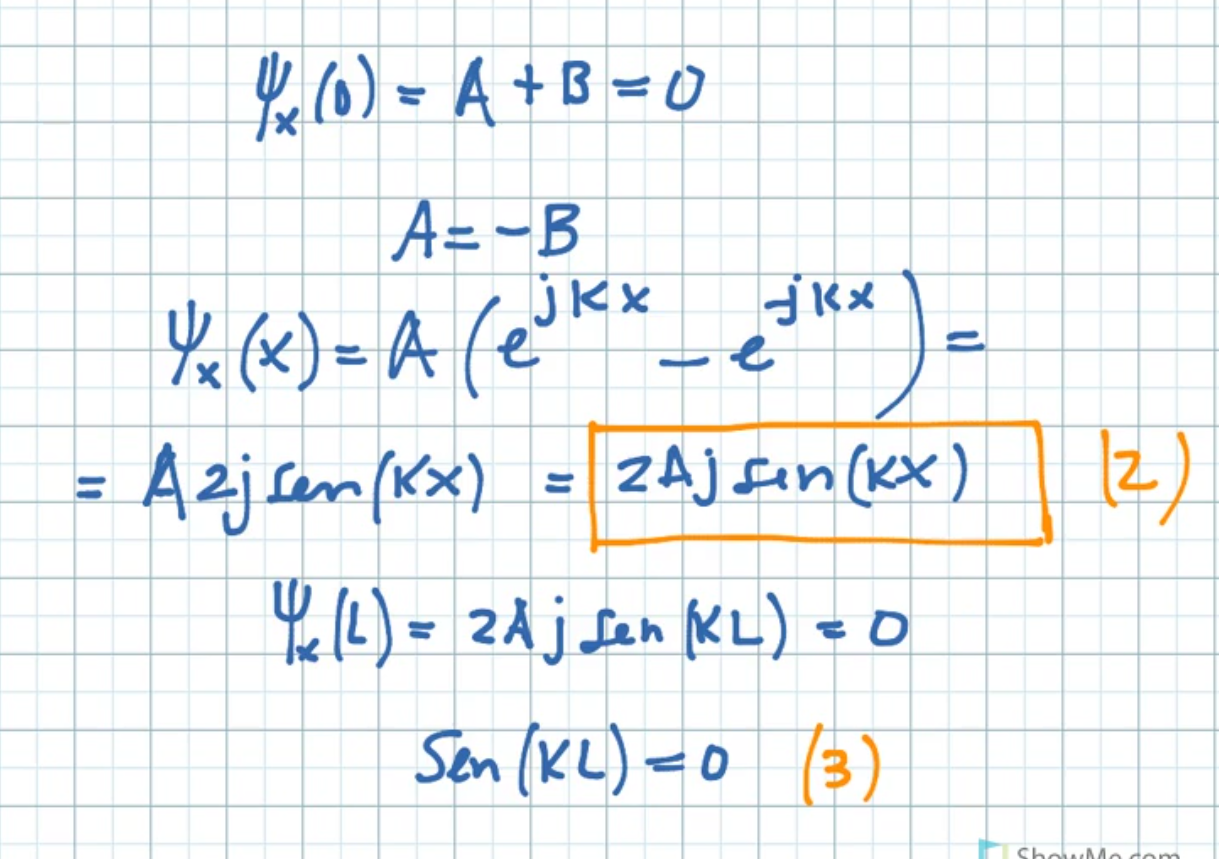 Ψₓ(0) = A + B = 0
A = -B
Ψₓ(x) = A (e^{jKx} - e^{-jKx}) =
= A 2j sen(Kx) = 2Aj sen(Kx) (2)
Ψₓ(L) = 2Aj sen(KL) = 0
Sen(KL) = 0 (3)
ShowMe.com